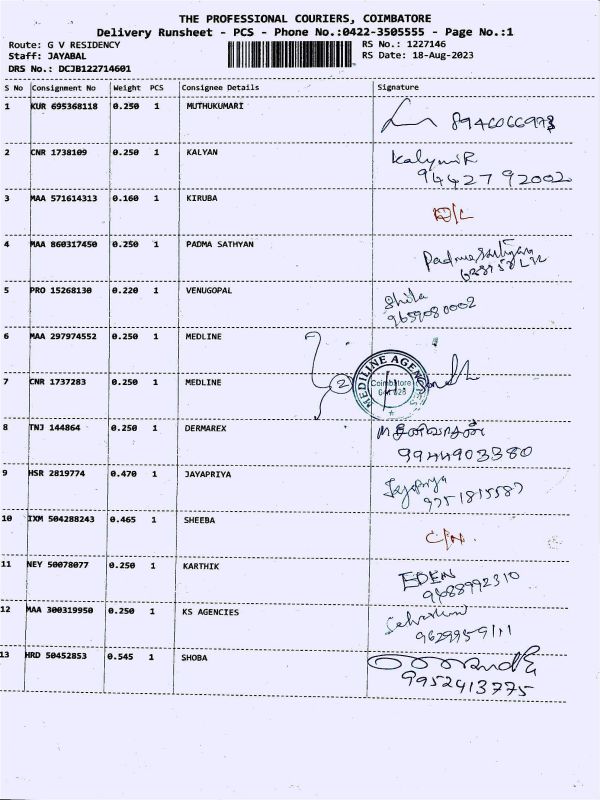 THE PROFESSIONAL COURIERS, COIMBATORE
Delivery Runsheet - PCS - Phone No.:0422-3505555 - Page No.:1
Route: G V RESIDENCY RS No.: 1227146
Staff: JAYABAL RS Date: 18-Aug-2023
DRS No.: DCJB122714601
S No Consignment No Weight PCS Consignee Details Signature
1 KUR 695368118 0.250 1 MUTHUKUMARI 8946066973
2 CNR 1738109 0.250 1 KALYAN KalyaniR
94427 92002
3 MAA 571614313 0.160 1 KIRUBA D/L
4 MAA 860317450 0.250 1 PADMA SATHYAN Padma Sathyan
5 PRO 15268130 0.220 1 VENUGOPAL Shila
9659080002
6 MAA 297974552 0.250 1 MEDLINE
7 CNR 1737283 0.250 1 MEDLINE 2 MEDILINE AGENCIES
Coimbatore
8 TNJ 144864 0.250 1 DERMAREX
9944903380
9 HSR 2819774 0.470 1 JAYAPRIYA Jayapriya
9751815587
10 IXM 504288243 0.465 1 SHEEBA C/N.
11 NEY 50078077 0.250 1 KARTHIK EDEN
9688992310
12 MAA 300319950 0.250 1 KS AGENCIES
9629959111
13 HRD 50452853 0.545 1 SHOBA
9952413775